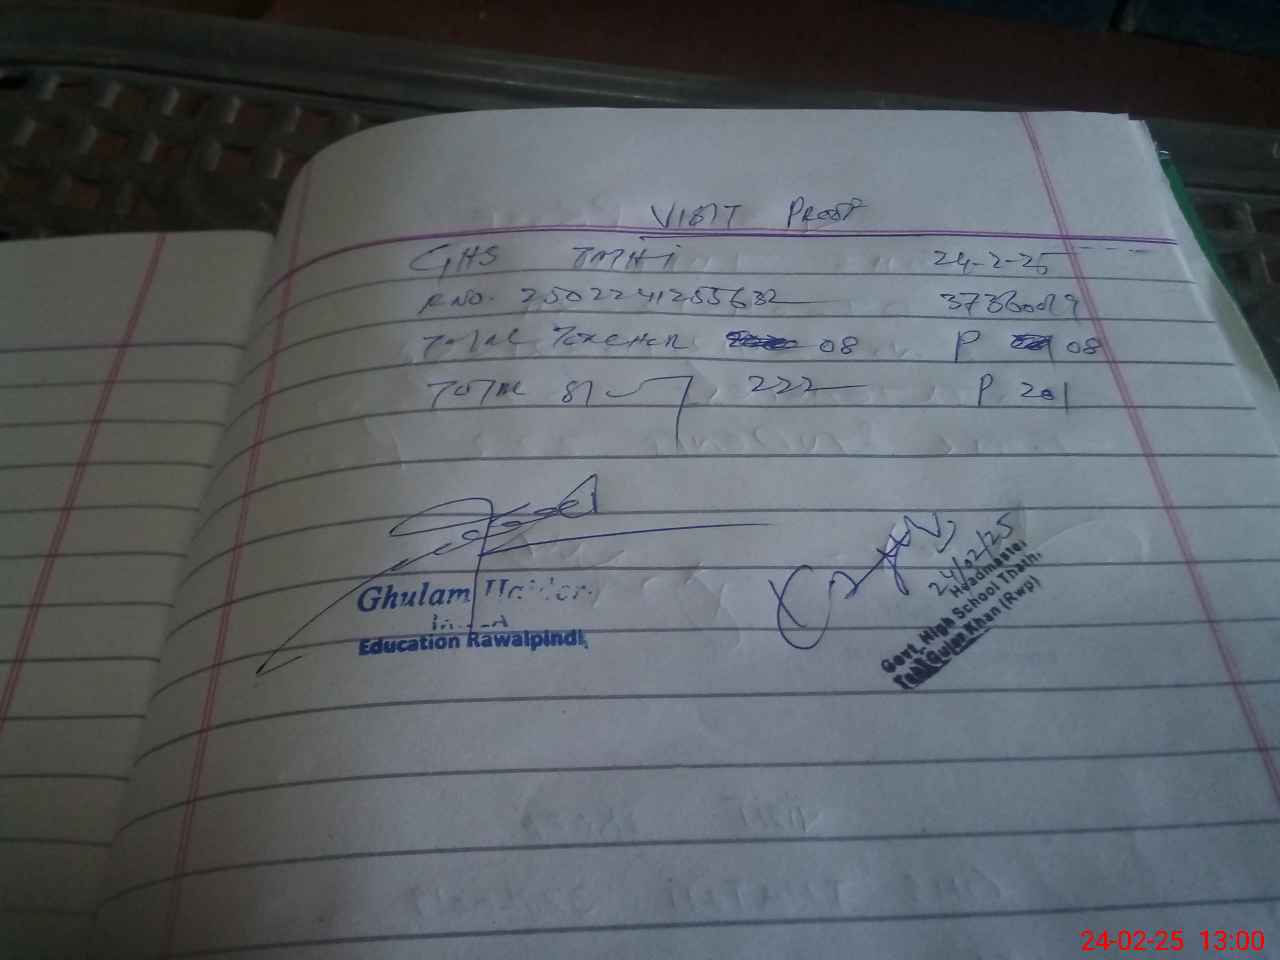 VISIT PROOF
GHS 24-2-25
R NO. 2502241255632 37360019
TOTAL TEACHER 08 P 08
TOTAL 222 P 201
24/02/25
Headmaster
Govt. High School Thathi,
Teh: Gujar Khan (Rwp)
Ghulam Haider
Education Rawalpindi
24-02-25 13:00